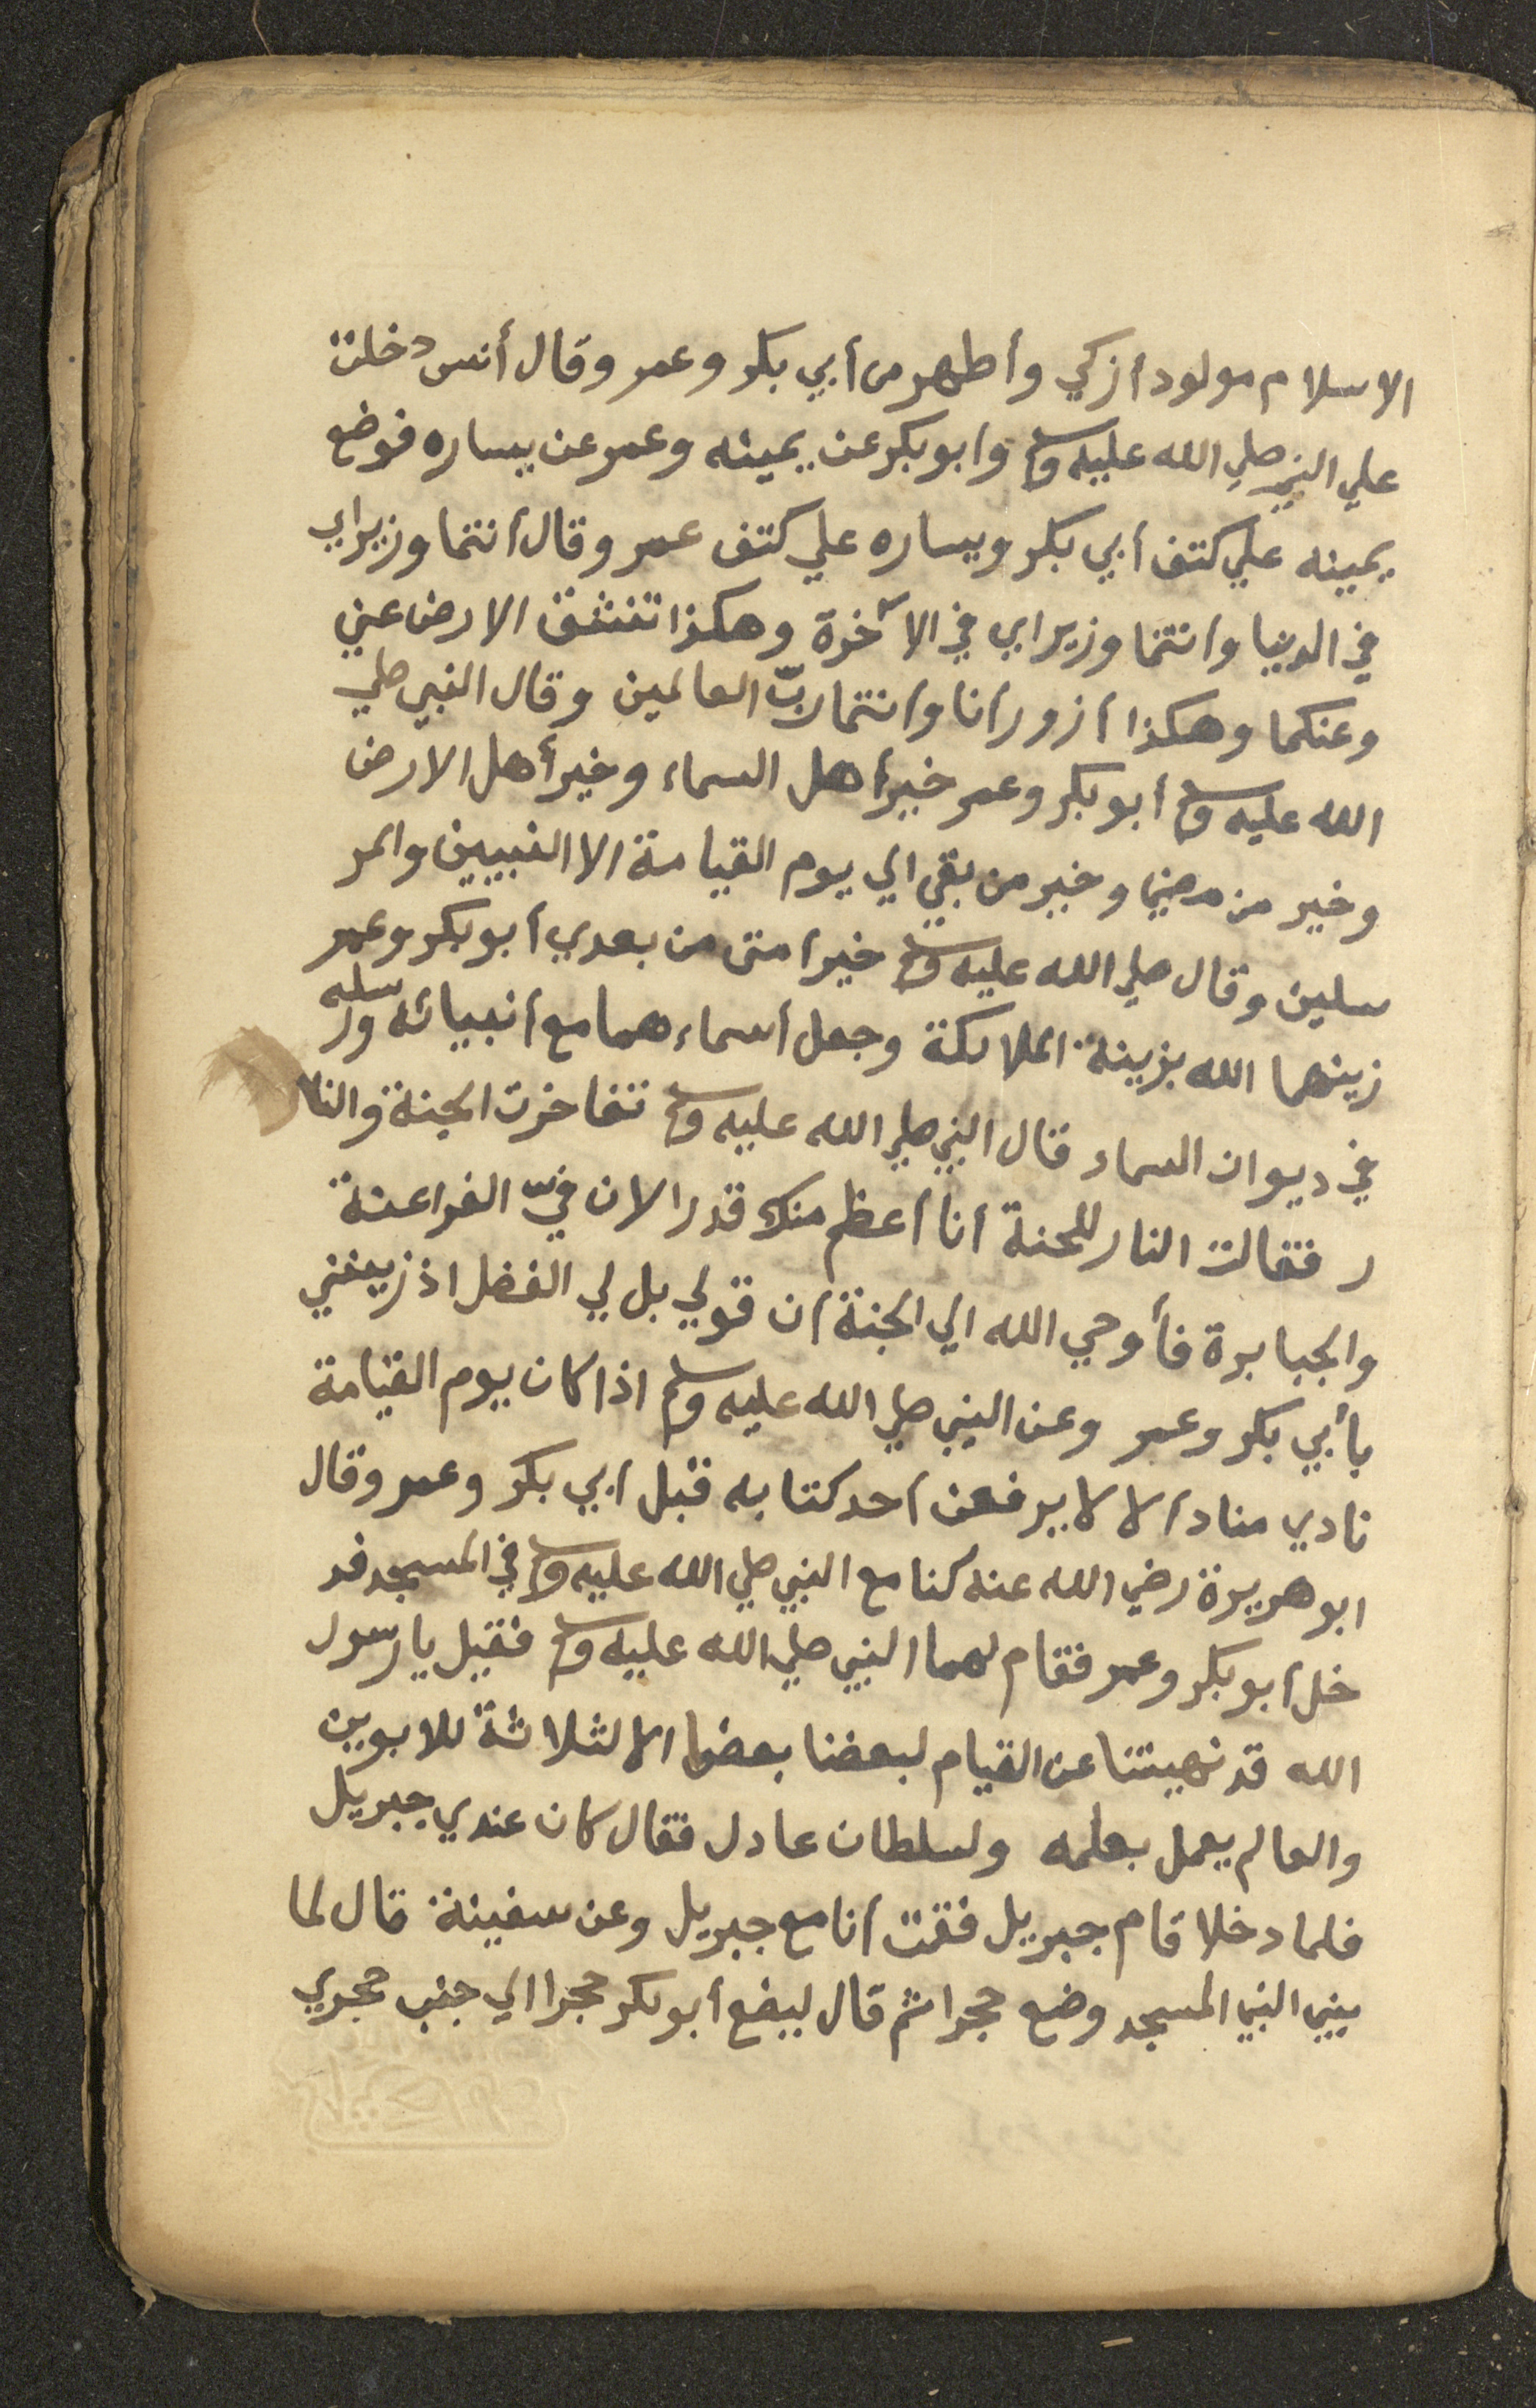 الاسلام مولود أزكي وأطهر من أبي بكر وعمر وقال أنس دخلت
علي النبي صلي الله عليه وسلم وابو بكر عن يمينه وعمر عن يساره فوضع
يمينه علي كتف أبي بكر ويساره علي كتف عمر وقال أنتما وزيراي
في الدنيا وأنتما وزيراي في الآخرة وهكذا تنشق الارض عني
وعنكما وهكذا أزور أنا وأنتما ربّ العالمين وقال النبي صلي
الله عليه وسلم أبو بكر وعمر خير أهل السماء وخير أهل الارض
وخير من مضي وخير من بقي الي يوم القيامة الا النبيين والمر
سلين وقال صلي الله عليه وسلم خير أمتى من بعدي أبو بكر وعمر
زينهما الله بزينة الملائكة وجعل أسماءهما مع أنبيائه ورسله
في ديوان السماء قال النبي صلي الله عليه وسلم تفاخرت الجنة والنا
ر فقالت النار للجنة أنا أعظم منك قدرا لان فيّ الفراعنة
والجبابرة فأوحي الله الي الجنة أن قولي بل لي الفضل اذ زينني
بأبي بكر وعمر وعن النبي صلي الله عليه وسلم اذا كان يوم القيامة
نادي مناد ألا لا يرفعن أحد كتابه قبل أبي بكر وعمر وقال
ابو هريرة رضي الله عنه كنا مع النبي صلي الله عليه وسلم في المسجد فد
خل أبو بكر وعمر فقام لهما النبي صلي الله عليه وسلم فقيل يا رسول
الله قد نهيتنا عن القيام لبعضنا بعضا الا لثلاثة للابوين
والعالم يعمل بعلمه ولسلطان عادل فقال كان عندي جبريل
فلما دخلا قام جبريل فقمت أنا مع جبريل وعن سفينة قال لما
بني النبي المسجد وضع حجرا ثم قال ليضع أبو بكر حجرا الي جنب حجري